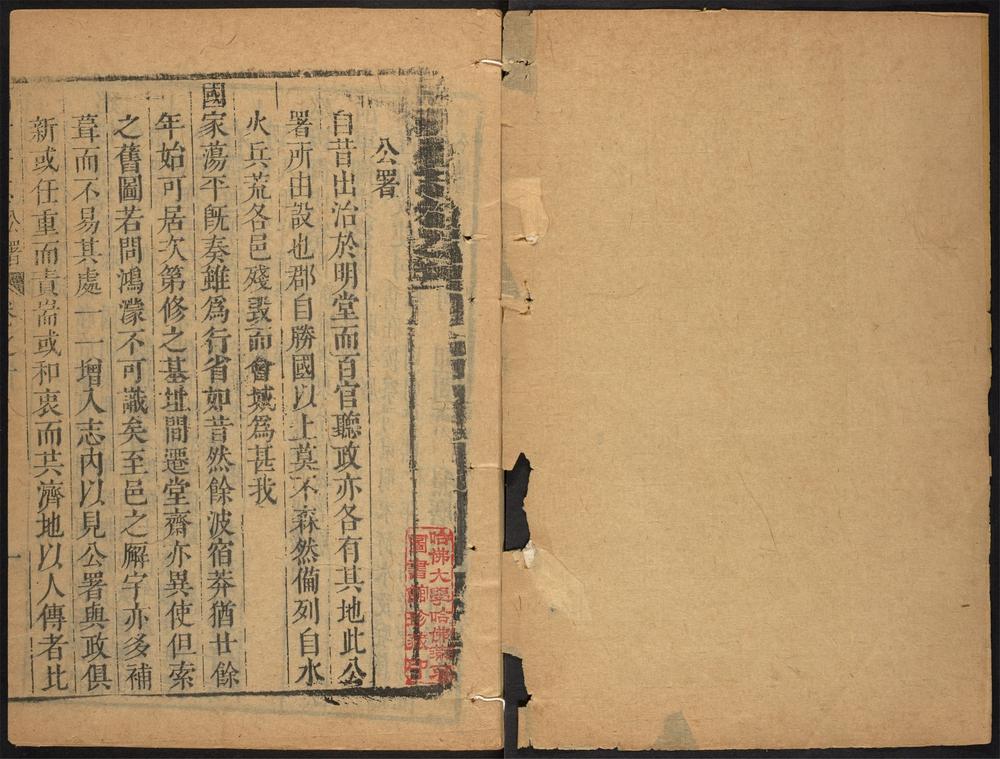 公署
自昔出治於明堂而百官聽政亦各有其地此公
署所由設也郡自勝國以上莫不森然備列自水
火兵荒各邑殘毀而會城爲甚我
國家蕩平旣奏雖爲行省如昔然餘波宿莽猶廿餘
年始可居次第修之基址間遷堂齋亦異使但索
之舊圖若問鴻濛不可識矣至邑之廨宇亦多補
葺而不易其處一一增入志內以見公署與政俱
新或任重而責耑或和衷而共濟地以人傳者比
公署
一
哈佛大學哈佛燕京
圖書館珍藏印